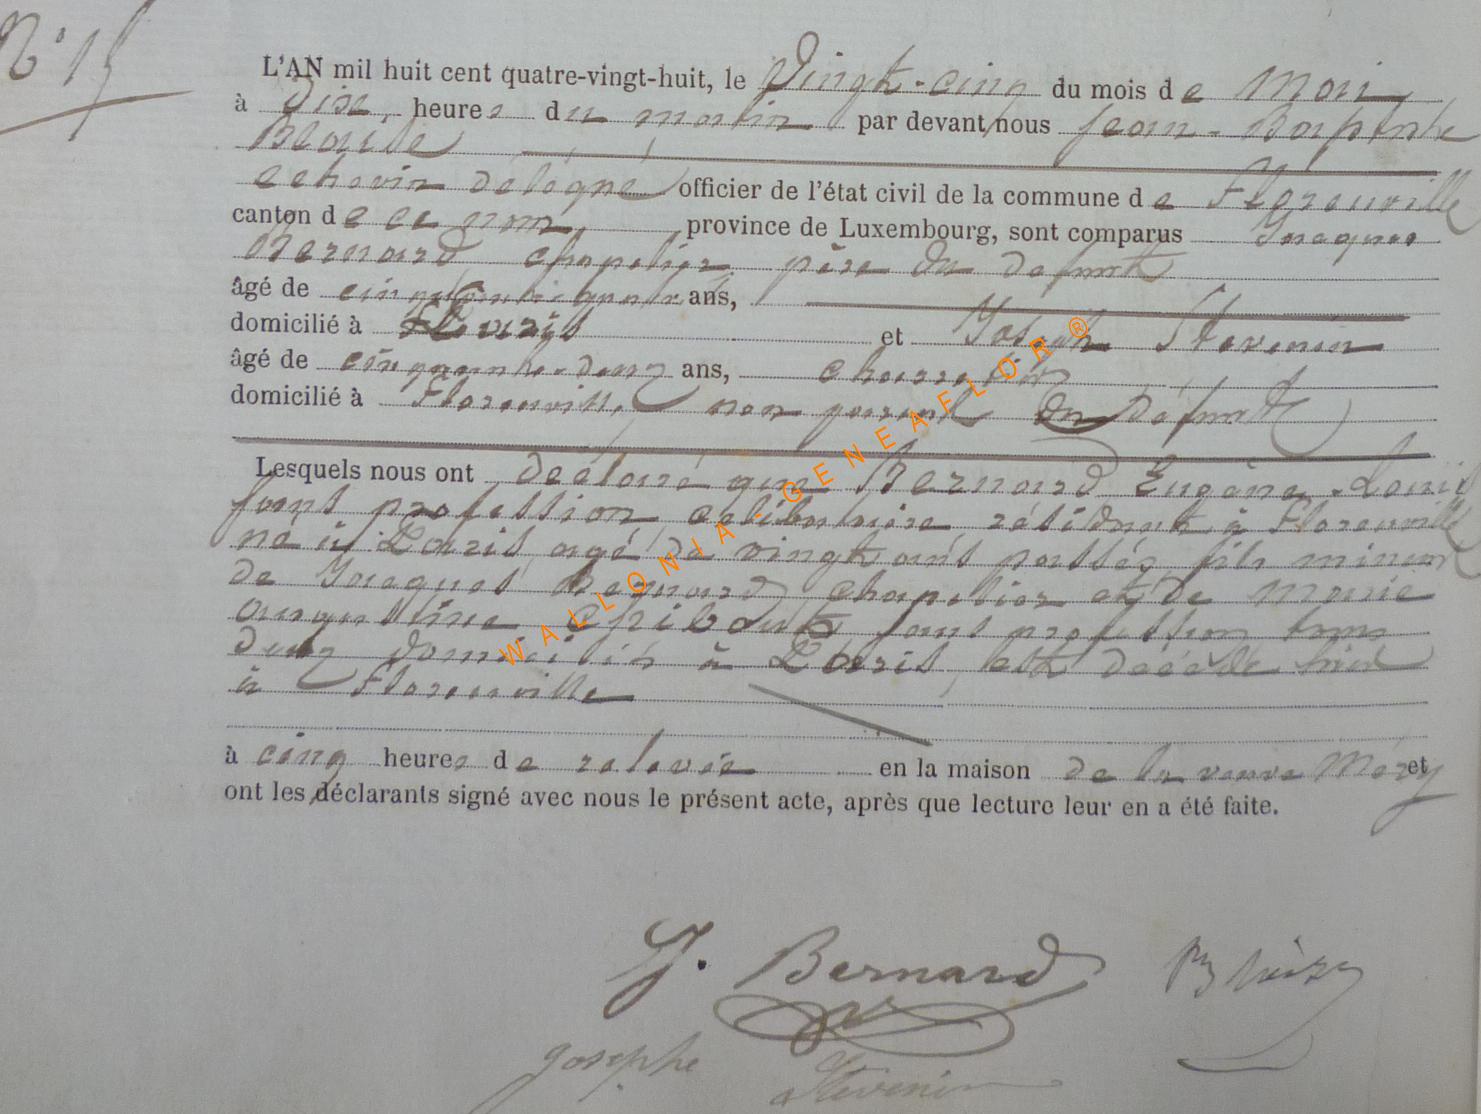 N° 15
L'AN mil huit cent quatre-vingt-huit, le Vingt-cinq du mois de Mai
à dix heures du matin par devant nous Jean-Baptiste
Blaise
échevin délégué officier de l'état civil de la commune de Florenville
canton de ce nom, province de Luxembourg, sont comparus Jacques
Bernard chapelier père du défunt
âgé de cinquante-quatre ans,
domicilié à Paris et Joseph Stevenin
âgé de cinquante-deux ans,
domicilié à Florenville non parent du défunt
Lesquels nous ont déclaré que Bernard Eugène-Louis
sans profession célibataire résidant à Florenville
né à Paris âgé de vingt ans passés, fils mineur
de Jacques Bernard chapelier et de Marie
augustine sans profession tous
deux domiciliés à Paris, est décédé hier
à Florenville
à cinq heures de relevée en la maison de la veuve Méry et
ont les déclarants signé avec nous le présent acte, après que lecture leur en a été faite.
J. Bernard
Blaise
Josephe Stevenin
WALLONIA - GENEAFLOR ®